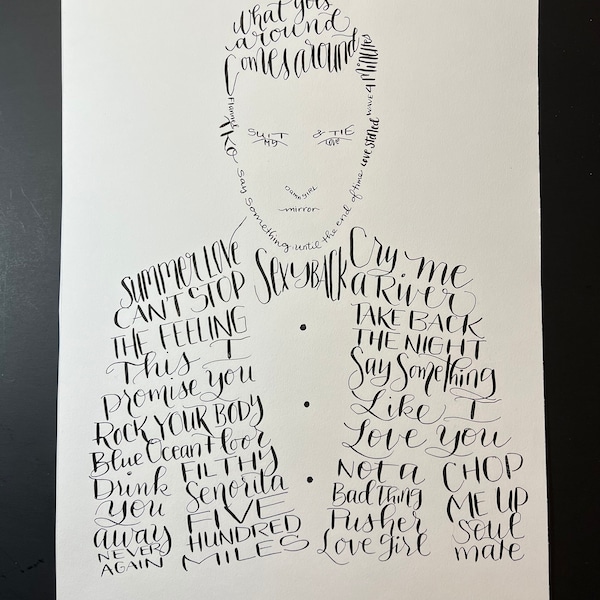 What goes
around
Comes around
4 Minutes
WAVE
love stoned
Flame
AKO
SUIT & TIE
My Love
DAMN GIRL
mirror
Say Something until the end of time
SUMMER LOVE
CAN'T STOP
THE FEELING
This I
Promise you
ROCK YOUR BODY
Blue Ocean Floor
Drink
you
away
NEVER
AGAIN
FILTHY
Senorita
FIVE
HUNDRED
MILES
SexyBACK
Cry me
a River
TAKE BACK
THE NIGHT
Say Something
Like I
Love you
NOT a
Bad Thing
Pusher
Love Girl
CHOP
ME UP
Soul
mate